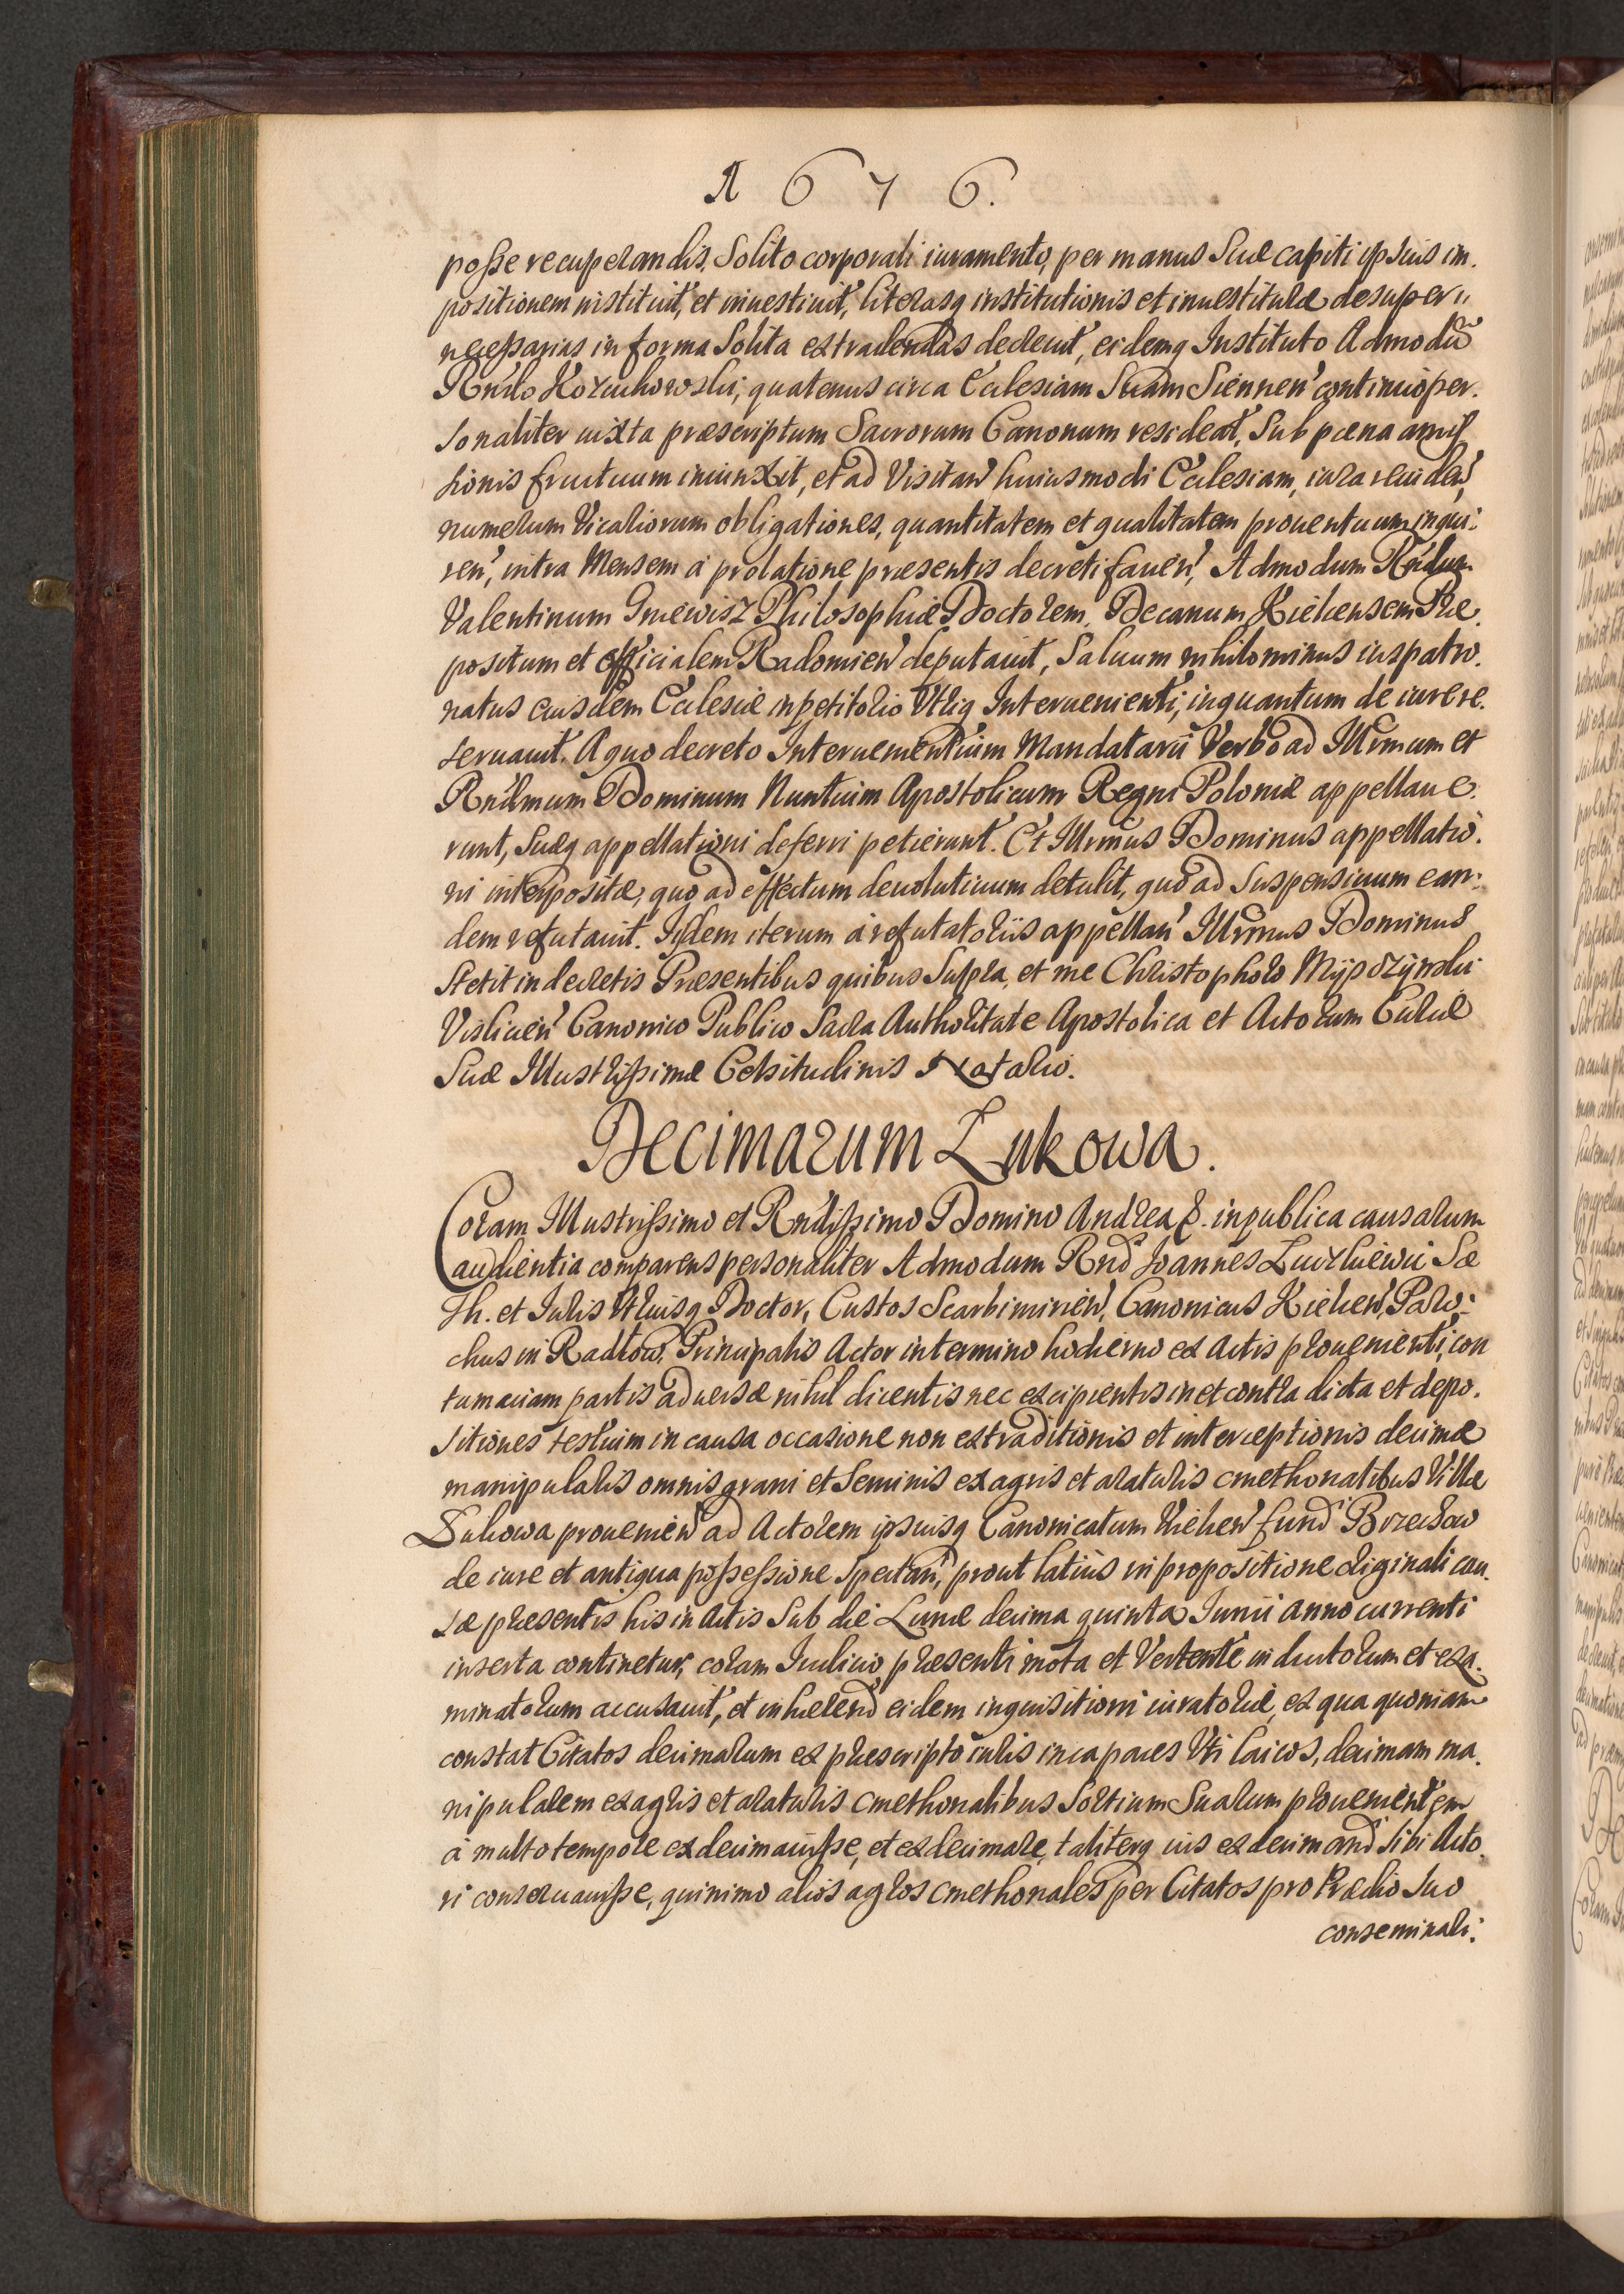 A 676.
posse recuperandis, Solito corporali iuramento, per manus Suæ capiti ipsius im-
positionem instituit, et inuestiuit, literasq institutionis et inuestituræ desuper
necessarias in forma Solita extradendas decreuit, eidemq Instituto Admodũ
Rndo Kozuchowski, quatenus circa Ecclesiam Suam Siennen' continuo per-
sonaliter iuxta præscriptum Sacrorum Canonum resideat, Sub pœna amis
sionis fructuum iniunxit, et ad Visitan' huiusmodi Ecclesiam, iura reuiden',
numerum Vicariorum obligationes, quantitatem et qualitatem prouentuum inqui-
ren', intra Mensem à prolatione præsentis decreti facien', Admodum Rndum
Valentinum Gniewisz Philosophiæ Doctorem, Decanum Kielcensem Præ-
positum et Officialem Radomien' deputauit, Saluum nihilominus ius patro-
natus eiusdem Ecclesiæ in petitorio Vtriq Interuenienti, inquantum de iure re-
seruauit. A quo decreto Interuenientium Mandatarii Verbo ad Illrmum et
Rndmum Dominum Nuntium Apostolicum Regni Poloniæ appellaue-
runt, Suæq appellationi deferri petierunt. Et Illrmus Dominus appellatio-
ni interpositæ, quo ad effectum deuolutiuum detulit, quo ad Suspensiuum ean-
dem refutauit. Iisdem iterum à refutatoriis appellan' Illrmus Dominus
Stetit in decretis Præsentibus quibus Supra, et me Christophoro
Vislicien' Canonico Publico Sacra Authoritate Apostolica et Actorum Curiæ
Suæ Illustrissimæ Celsitudinis Notario.
Decimarum Lukowa.
Coram Illustrissimo et Rndissimo Domino Andrea &. in publica causarum
audientia comparens personaliter Admodum Rnd Joannes Sæ
Th. et Iuris Vtriusq Doctor, Custos Scarbimirien', Canonicus Kielcen', Paro-
chus in Radłow, Principalis Actor in termino hodierno ex Actis prouenienti, con
tumaciam partis aduersæ nihil dicentis nec excipientis in et contra dicta et depo-
sitiones testium in causa occasione non extraditionis et interceptionis decimæ
manipularis omnis grani et Seminis ex agris et araturis cmethonalibus Villæ
Lukowa prouenien' ad Actorem ipsiusq Canonicatum Kielcen' fund' Brzechow
de iure et antiqua possessione Spectan', prout latius in propositione originali cau-
sæ præsentis his in Actis Sub die Lunæ decima quinta Iunii anno currenti
inserta continetur, coram Iudicio præsenti mota et Vertente inductorum et exa-
minatorum accusauit, et inhærend' eidem inquisitioni iuratoriæ, ex qua quoniam
constat Citatos decimarum ex præscripto iuris incapaces Vti laicos, decimam ma-
nipularem ex agris et araturis cmethonalibus Sortium Suarum prouenientem
à multo tempore exdecimauisse, et exdecimare, taliterq ius exdecimand' Sibi Acto-
ri conseruauisse, quinimo alios agros cmethonales per Citatos pro Prædio Suo
conseminali: